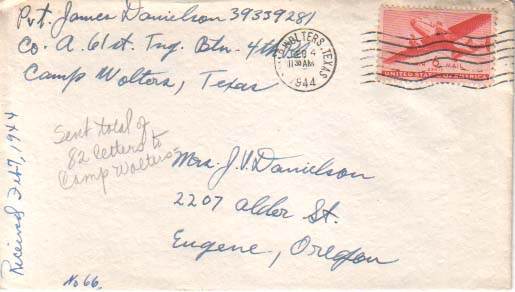 Pvt. James Danielson 39339281
Co. A. 61st. Tng. Btn. 4th
Camp Wolters, Texas
WOLTERS, TEXAS
DEC 4
11 30 AM
1944
AIR MAIL
UNITED STATES OF AMERICA
Sent total of
82 letters to
Camp Wolters
Mrs. J.V. Danielson
2207 Alder St.
Eugene, Oregon
Received 1944
No 66.